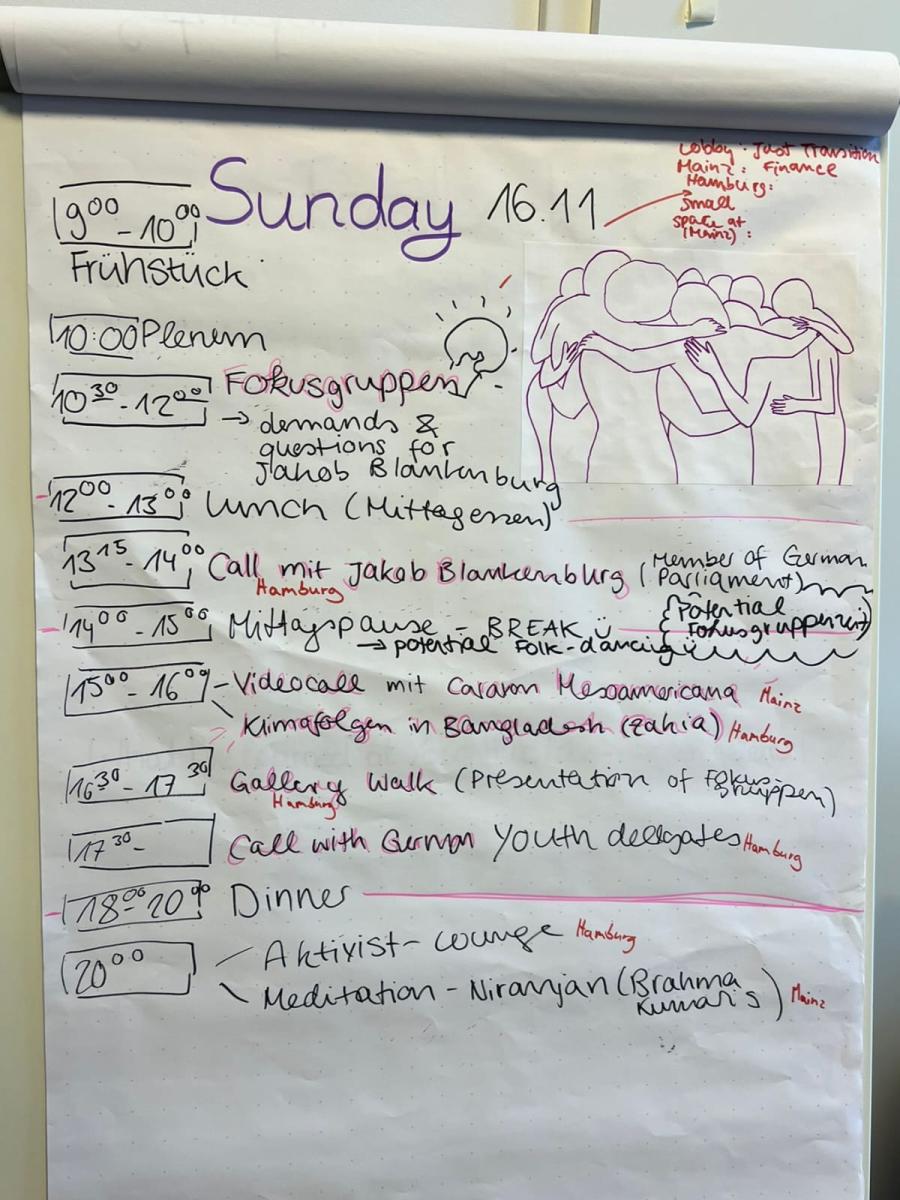 Lobby: Just Transition
Mainz: Finance
Hamburg:
Small
space at
(Mainz):
Sunday 16.11
9⁰⁰ - 10⁰⁰
Frühstück
10:00 Plenum
10³⁰ - 12⁰⁰ Fokusgruppen
→ demands &
questions for
Jakob Blankenburg
12⁰⁰ - 13⁰⁰ Lunch (Mittagessen)
13¹⁵ - 14⁰⁰ Call mit Jakob Blankenburg (Member of German
Parliament)
Hamburg
14⁰⁰ - 15⁰⁰ Mittagspause - BREAK ü
(Potential
Fokusgruppenzeit)
→ potential Folk-dancing ü
15⁰⁰ - 16⁰⁰ - Videocall mit Caravan Mesoamericana Mainz
Klimafolgen in Bangladesh (Zakia) Hamburg
16³⁰ - 17³⁰ Gallery Walk (Presentation of Fokus-
gruppen)
Hamburg
17³⁰ - Call with German Youth delegates Hamburg
18⁰⁰ - 20⁰⁰ Dinner
20⁰⁰ Aktivist-Lounge Hamburg
Meditation - Niranjan (Brahma
Kumaris) Mainz